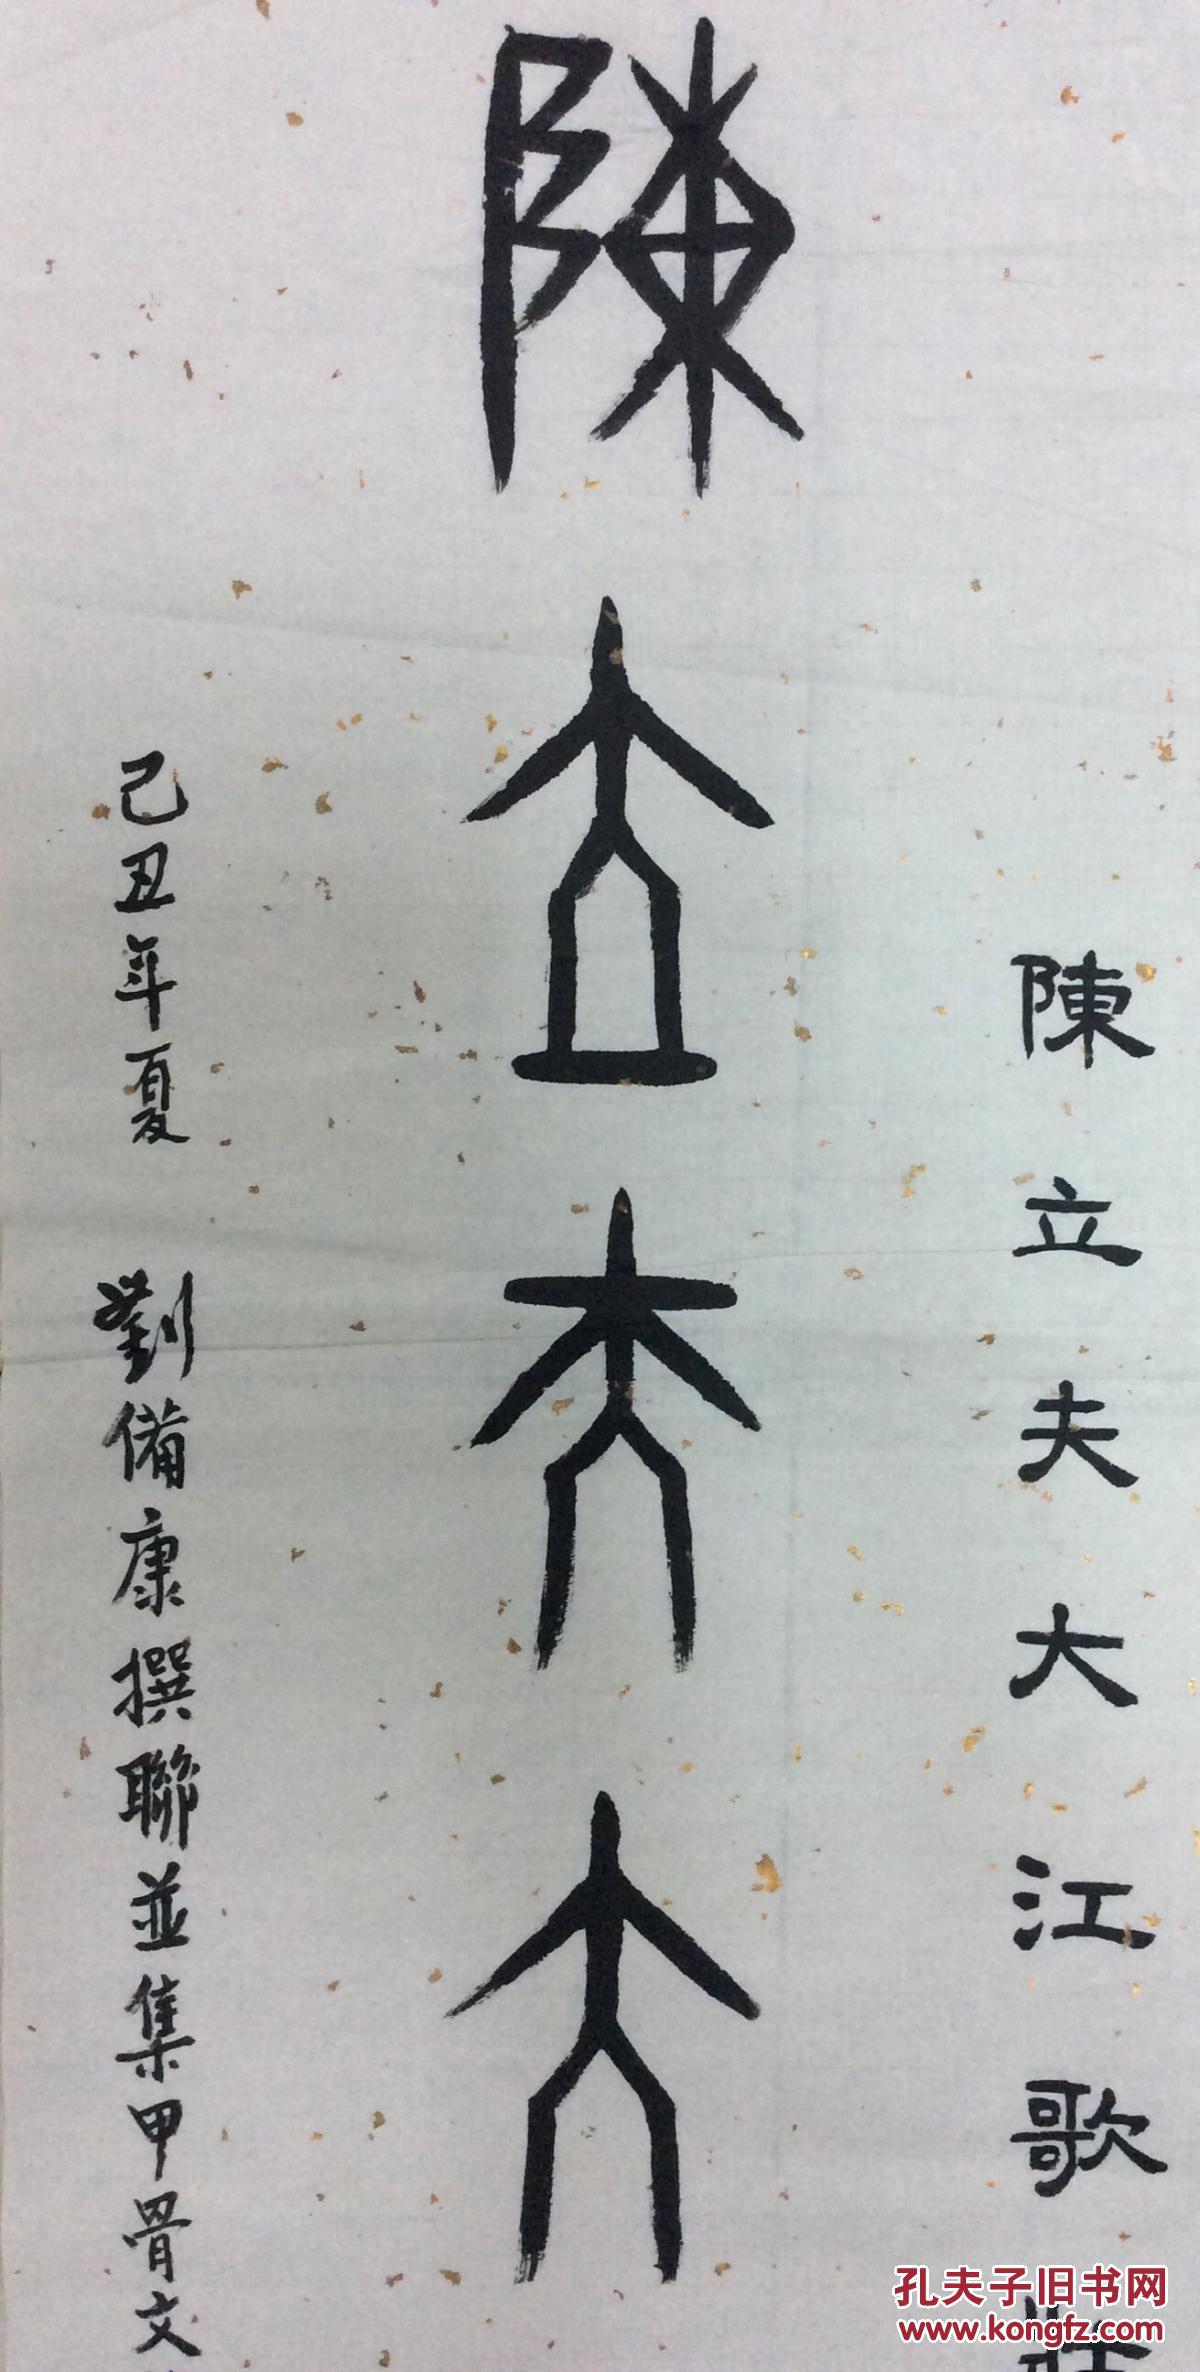 陳立夫大江歌
陳立夫大
己丑年夏 劉備康撰聯並集甲骨文
孔夫子旧书网
www.kongfz.com